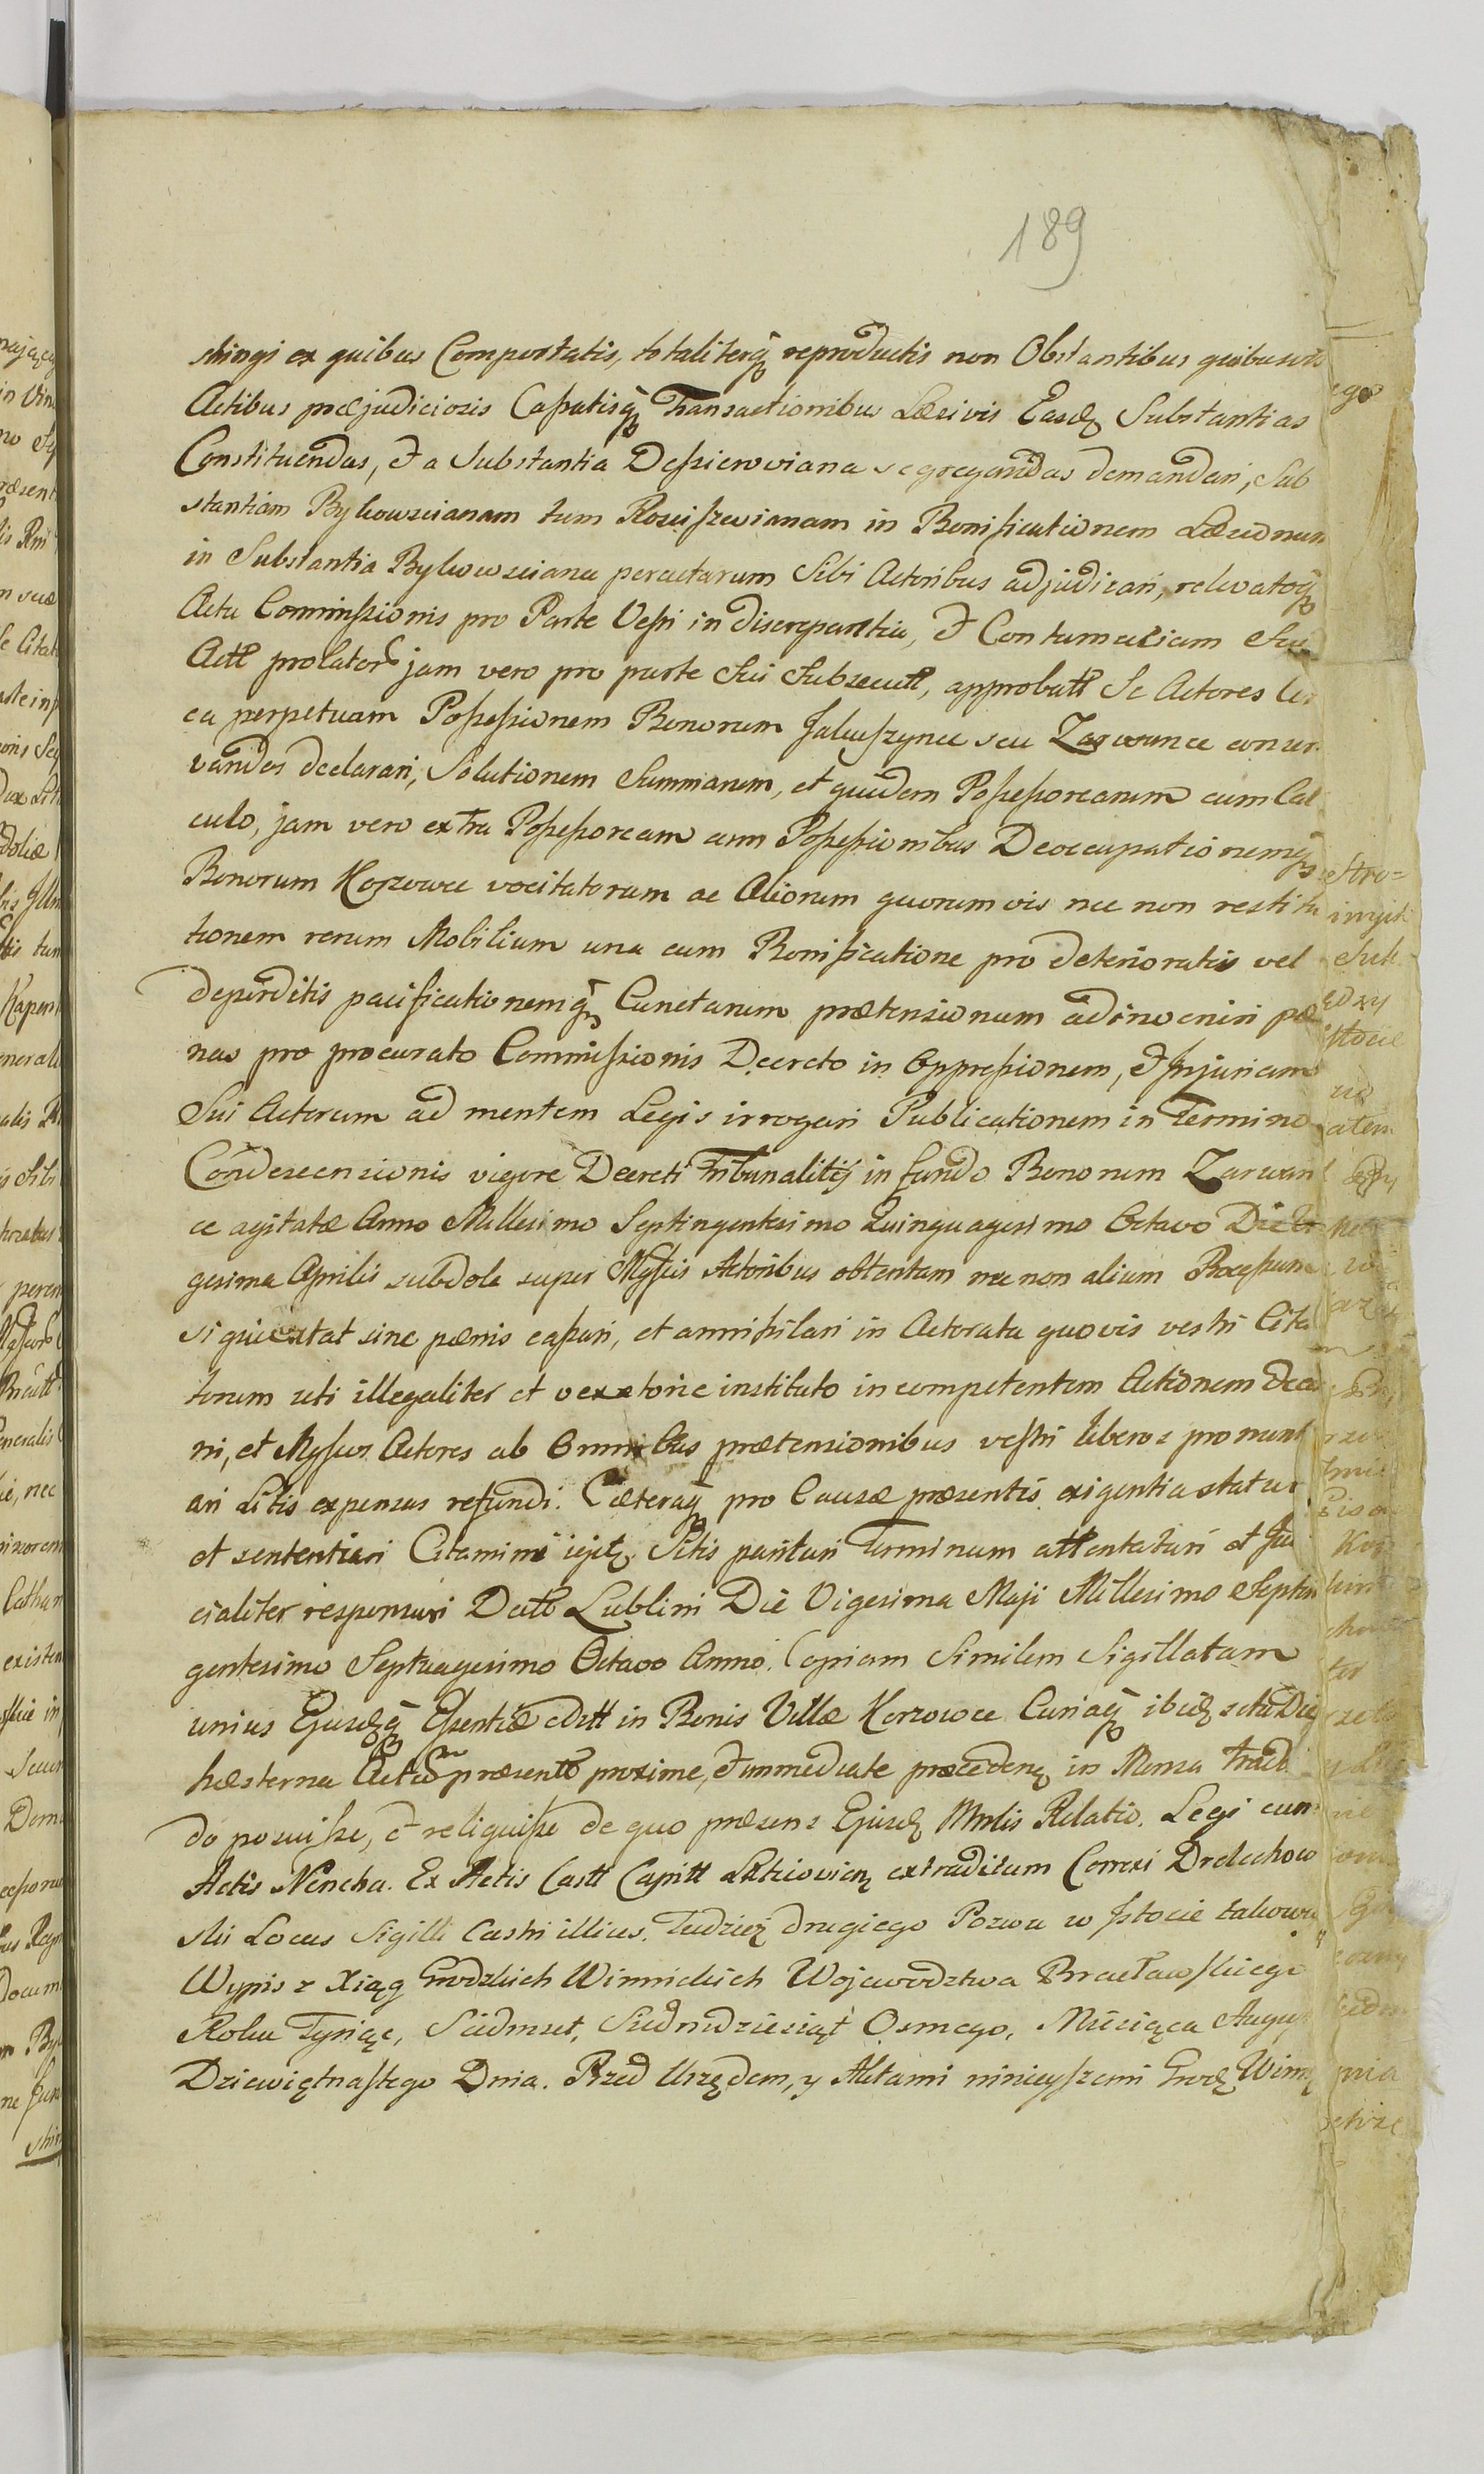 189
stringi ex quibus Comportatis, totaliterq̃ reproductis non Obstantibus quibusvis
Actibus præjudiciosis Cassatisq̃ Transactionibus Læsivis Easdę Substantias
Constituendas, & a Substantia Dessierowiana segregandas demandari, Sub
stantiam Bykowscianam tum Roscisszewianam in Bonificationem Læsionum
in Substantia Bykowsciana peractarum Sibi Actoribus adjudicari, relevatoq̃
Actu Commissionis pro Parte Vestri in discrepantia, & Contumaciam Sui
Actt prolator jam vero pro parte Sui Subsecutt, approbatt Se Actores cir
ca perpetuam Possessionem Bonorum Jaluszynce seu Zarwance conser
vandos declarari, Solutionem Summarum, et quidem Possessorearum cum Cal
culo, jam vero extra Possessoream cum Possessionibus Deoccupationemq̃
Bonorum Korzowce vocitatorum ac Aliorum quorumvis nec non restitu
tionem rerum Mobilium una cum Bonificatione pro deterioratis vel
deperditis pacificationemq̃ Cunctarum prætensionum adinveniri pæ
nas pro procurato Commissionis Decreto in Oppressionem, & Injuriam
Sui Actorum ad mentem Legis irrogari Publicationem in Termino
Condescensionis vigore Decreti Tribunalitij in fundo Bonorum Zarwan
ce agitatæ Anno Millesimo Septingentesimo Quinquagesimo Octavo Die Vi
gesima Aprilis subdole super Mgssis Actoribus obtentam nec non alium Processum
si qui extat sine pænis cassari, et annihilari in Actoratu quovis vestri Cita
torum uti illegaliter et vexatorie instituto incompetentem Actionem decer
ni, et Mgssos Actores ab Omnibus prætensionibus vestri liberos pronunti
ari Litis expensas refundi. Cæteraq̃ pro Causæ præsentis exigentia statui
et sententiari Citamini Sitis parituri Terminum attentaturi et Judi
cialiter responsuri Datt Lublini Die Vigesima Maji Millesimo Septin
gentesimo Septuagesimo Octavo Anno. Copiam Similem Sigillatam
unius Ejusdęq̃ Essentiæ edtt in Bonis Villæ Korzowce Curiaq̃ ibidę sita Die
hæsterna Actum præsentt proxime, & immediate præcedenę in Mensa Trad
do posuisse, & reliquisse de quo præsens Ejusdę Mnlis Relatio. Legi cum
Actis Nencha. Ex Actis Castt Capitt Ltticovienę extraditum Correxi Drelechow
ski Locus Sigilli Castri illius. Tudzież drugiego Pozwu w Istocie takowy
Wypis z Xiąg Grodzkich Winnickich Wojewodztwa Bracławskiego
Roku Tysiąc, Siedmset, Siedmdziesiąt Osmego, Miesiąca Augus
Dziewiętnastego Dnia. Przed Urzędem, y Aktami ninieyszemi Grodę Winnę